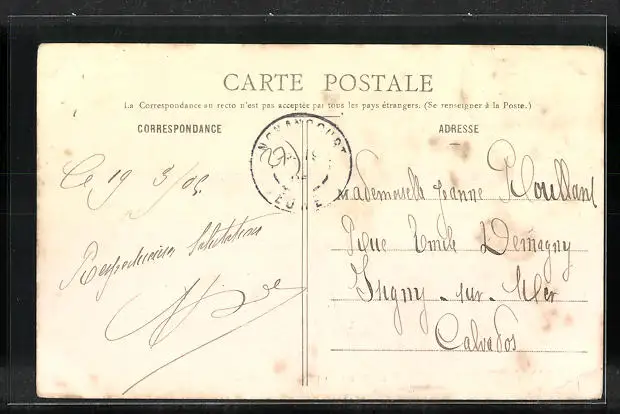 CARTE POSTALE
La Correspondance au recto n'est pas acceptée par tous les pays étrangers. (Se renseigner à la Poste.)
CORRESPONDANCE
ADRESSE
NONANCOURT
EURE
Le 19 3/05
Respectueuses Salutations
Mademoiselle Jeanne
Rue Emile Demagny
Isigny-sur-Mer
Calvados